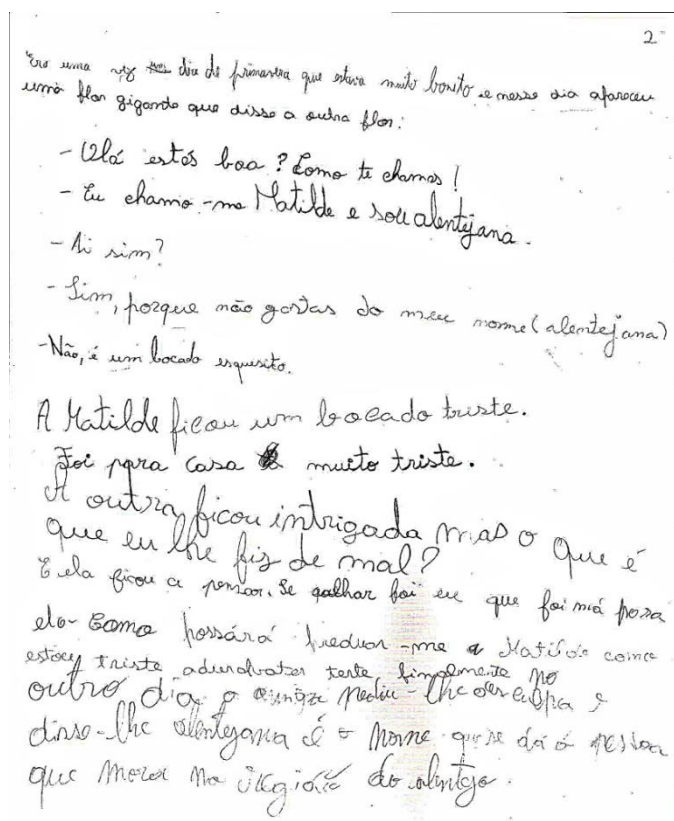 2
Era uma vez dia de primavera que estava muito bonito e nesse dia apareceu
uma flor gigande que disse a outra flor:
- Olá estás boa? Como te chamas!
- Eu chamo-me Matilde e sou alentejana.
- Ai sim?
- Sim, porque não gostas do meu nome (alentejana)
-Não, é um bocado esquesito.
A Matilde ficou um bocado triste.
Foi para casa muito triste.
A outra ficou intrigada mas o que é
que eu lhe fiz de mal?
E ela ficou a pensar. Se galhar foi eu que foi má para
ela- Como possárá -me a Matilde como
estou triste finalmente no
outro dia a amiga pediu-lhe desculpa e
disse-lhe alentejana é o nome que se dá á pessoa
que mora na do alentejo.